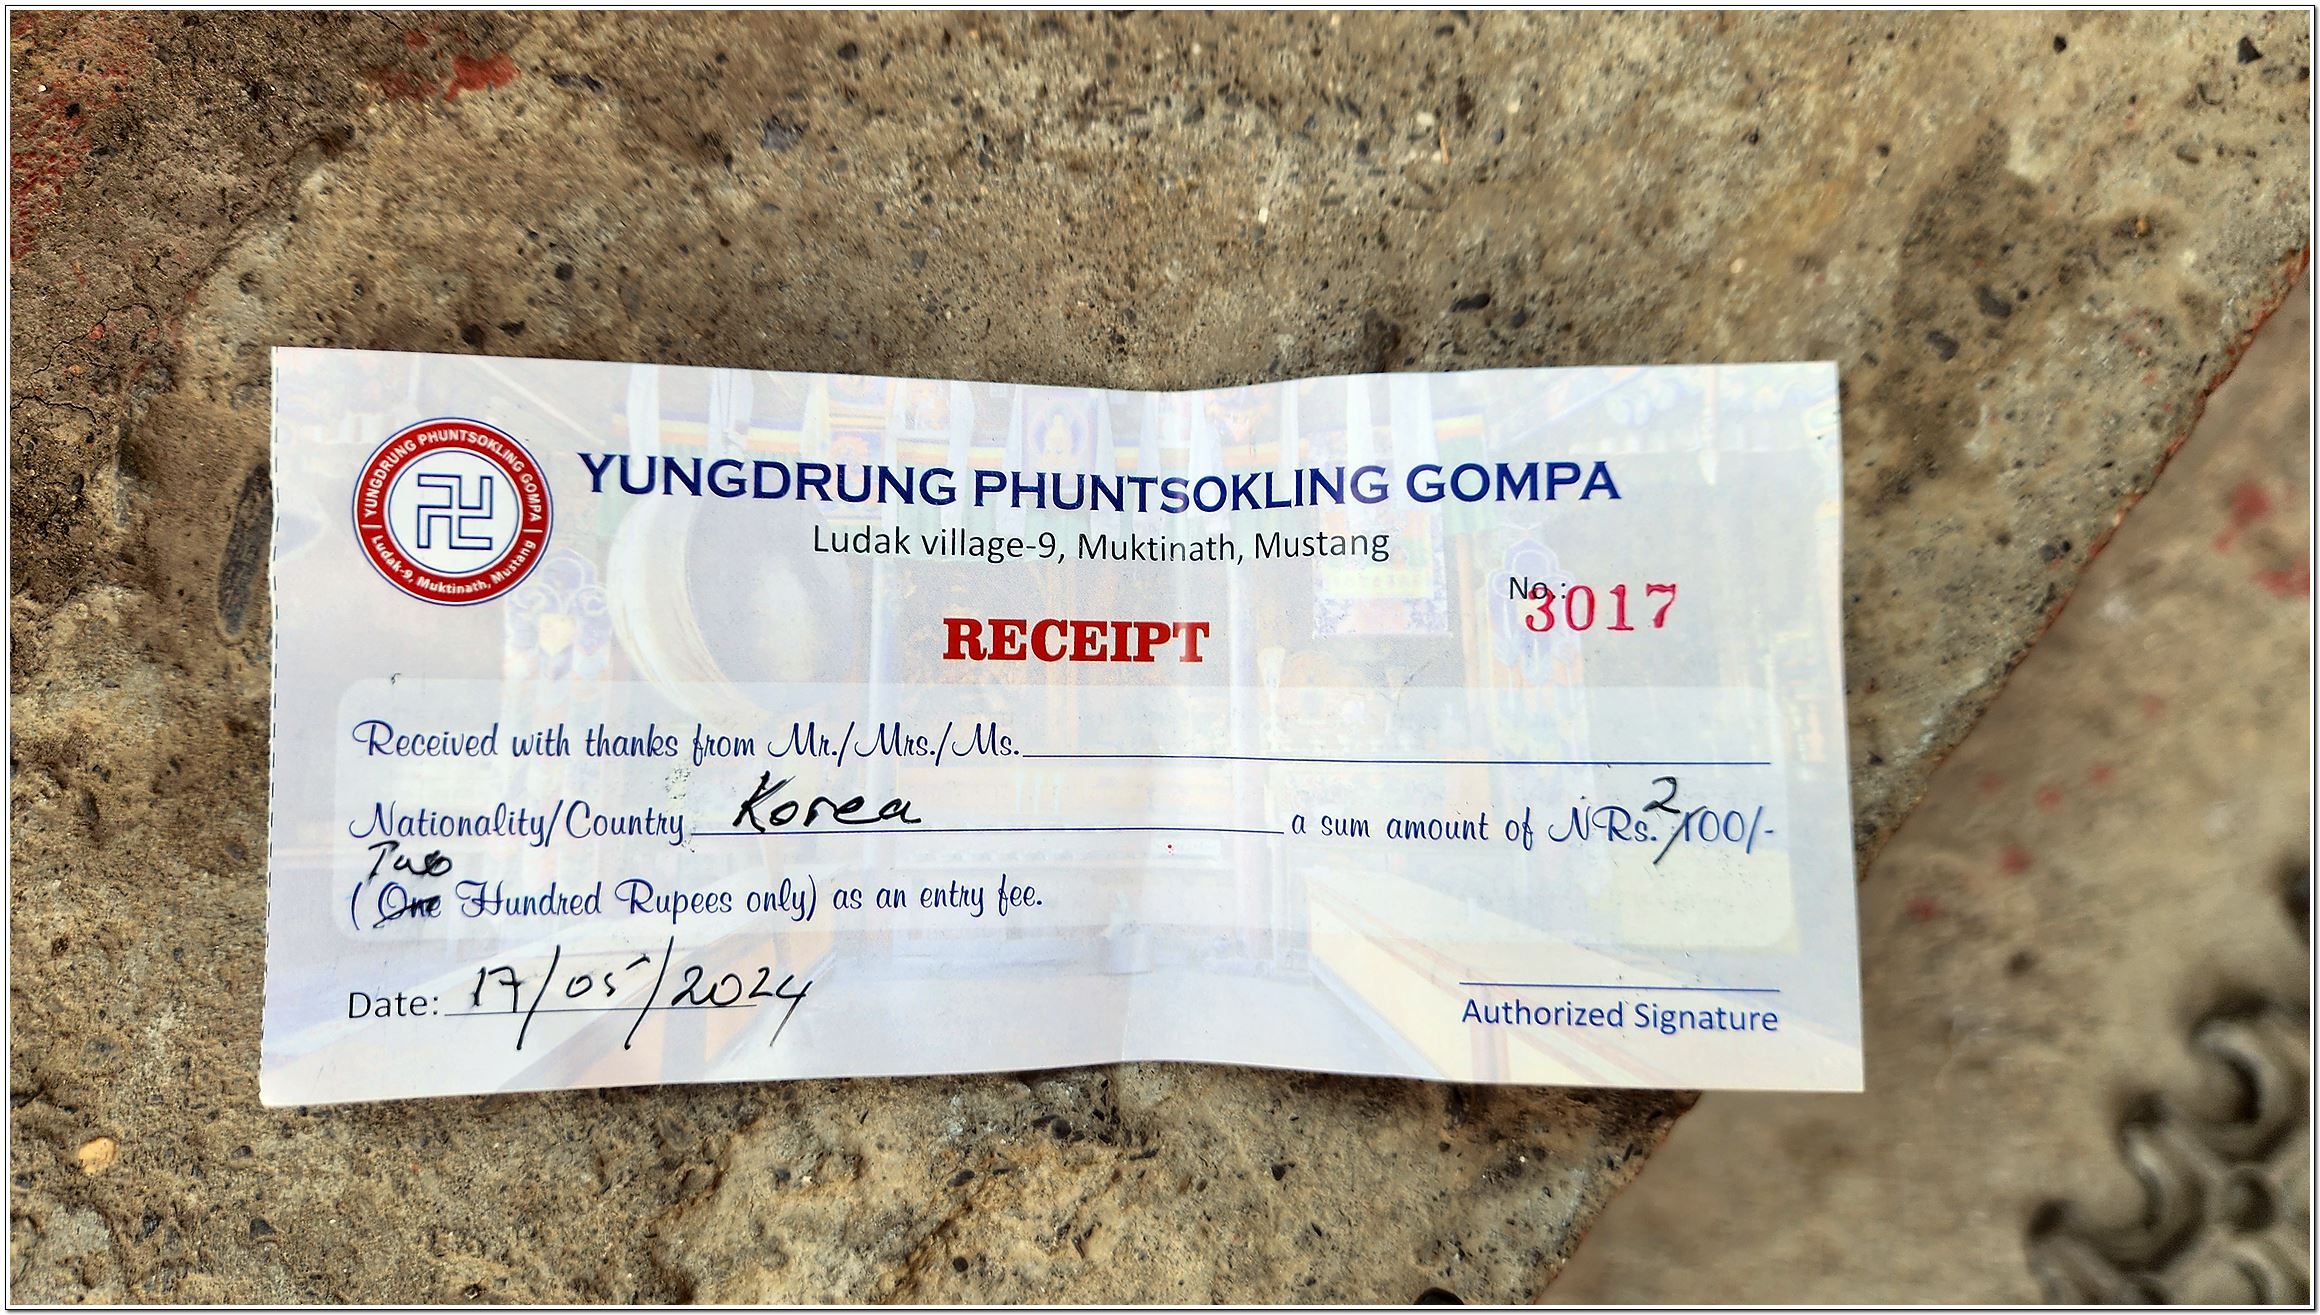 YUNGDRUNG PHUNTSOKLING GOMPA
Ludak-9, Muktinath, Mustang
YUNGDRUNG PHUNTSOKLING GOMPA
Ludak village-9, Muktinath, Mustang
No.: 3017
RECEIPT
Received with thanks from Mr./Mrs./Ms.
Nationality/Country Korea a sum amount of NRs. 2 100/-
Two
(One Hundred Rupees only) as an entry fee.
Date: 17/05/2024
Authorized Signature